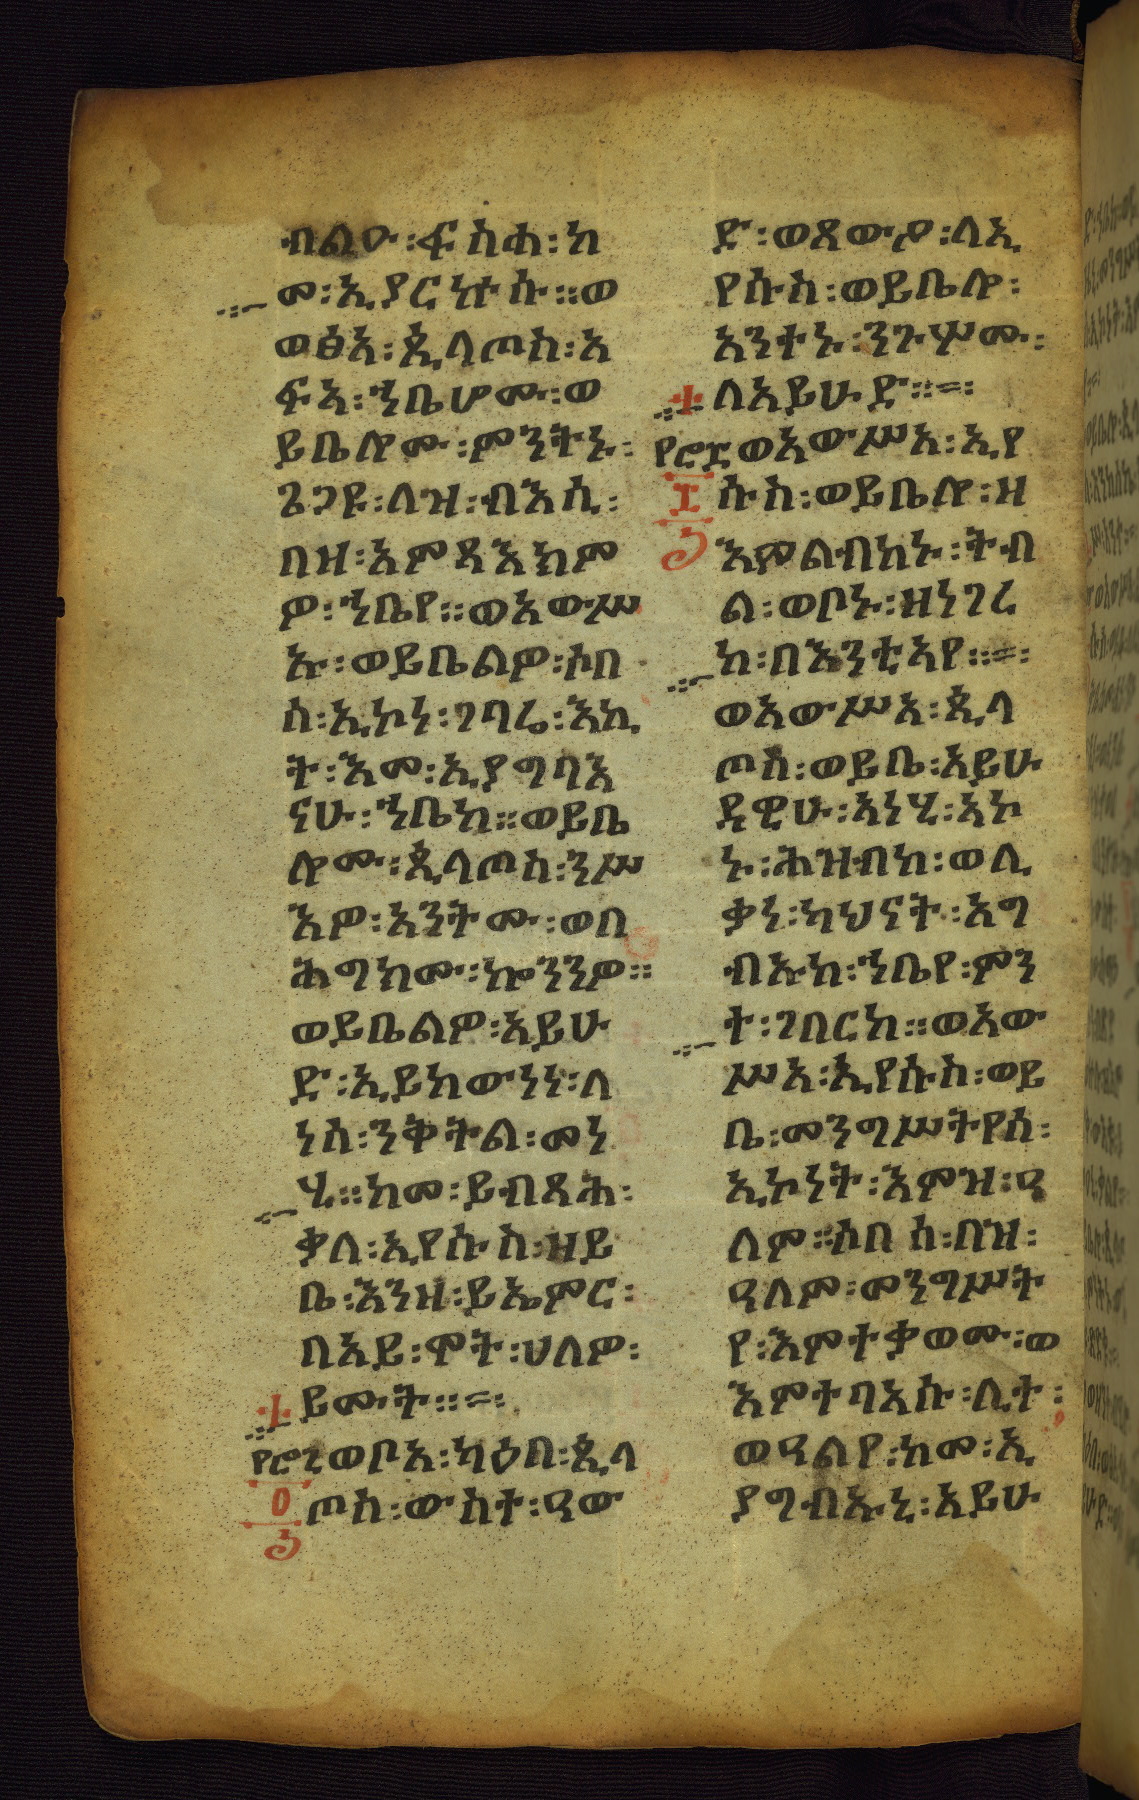 ብልዑ፡ፍስሐ፡ከ
መ፡ኢያርኵሱ።ወ
ወፅአ፡ጲላጦስ፡አ
ፍአ፡ኀቤሆሙ፡ወ
ይቤሎሙ፡ምንትኑ፡
ጌጋዩ፡ለዝ፡ብእሲ፡
በዘ፡አምጻእክም
ዎ፡ኀቤየ።ወአውሥ
ኡ፡ወይቤልዎ፡ሶበ
ሰ፡ኢኮነ፡ገባሬ፡እኪ
ት፡እመ፡ኢያግባእ
ናሁ፡ኀቤከ።ወይቤ
ሎሙ፡ጲላጦስ፡ንሥ
እዎ፡አንትሙ፡ወበ
ሕግክሙ፡ኰንንዎ።
ወይቤልዎ፡አይሁ
ድ፡ኢይክውነነ፡ለ
ነሰ፡ንቅትል፡መነ
ሂ።ከመ፡ይብጻሕ፡
ቃለ፡ኢየሱስ፡ዘይ
ቤ፡እንዘ፡ይኤምር፡
በአይ፡ሞት፡ሀለዎ፡
ይሙት።=፡
ወቦአ፡ካዕበ፡ጲላ
ጦስ፡ውስተ፡ዓው
ድ፡ወጸውዖ፡ለኢ
የሱስ፡ወይቤሎ፡
አንተኑ፡ንጉሦሙ፡
ለአይሁድ።=፡
ወአውሥአ፡ኢየ
ሱስ፡ወይቤሎ፡ዘ
እምልብከኑ፡ትብ
ል፡ወቦኑ፡ዘነገረ
ከ፡በእንቲአየ።=፡
ወአውሥአ፡ጲላ
ጦስ፡ወይቤ፡አይሁ
ዳዊሁ፡አነሂ፡አኮ
ኑ፡ሕዝብከ፡ወሊ
ቃነ፡ካህናት፡አግ
ብኡከ፡ኀቤየ፡ምን
ተ፡ገበርከ።ወአው
ሥአ፡ኢየሱስ፡ወይ
ቤ፡መንግሥትየሰ፡
ኢኮነት፡እምዝ፡ዓ
ለም።ሶበ ሰ፡በዝ፡
ዓለም፡መንግሥት
የ፡እምተቃወሙ፡ወ
እምተባአሱ፡ሊተ፡
ወዓልየ፡ከመ፡ኢ
ያግብኡኒ፡አይሁ